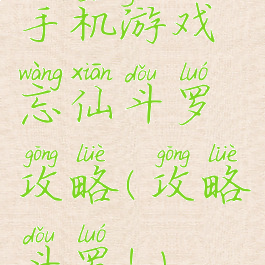 手机游戏
wàng xiān dǒu luó
忘仙斗罗
gōng lüè gōng lüè
攻略(攻略
dǒu luó
斗罗